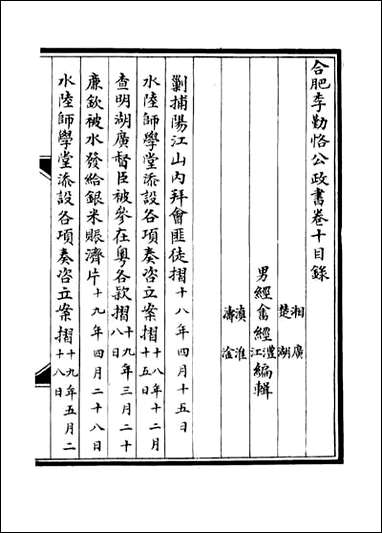 合肥李勤恪公政書卷十目錄
湘廣
楚湖
男經畬經澧江編輯
滇淮
濤淦
剿捕陽江山內拜會匪徒摺十八年四月十五日
水陸師學堂添設各項奏咨立案摺十八年十二月十五日
查明湖廣督臣被參在粵各款摺十九年三月二十八日
廉欽被水發給銀米賬濟片十九年四月二十八日
水陸師學堂添設各項奏咨立案摺十九年五月二十八日